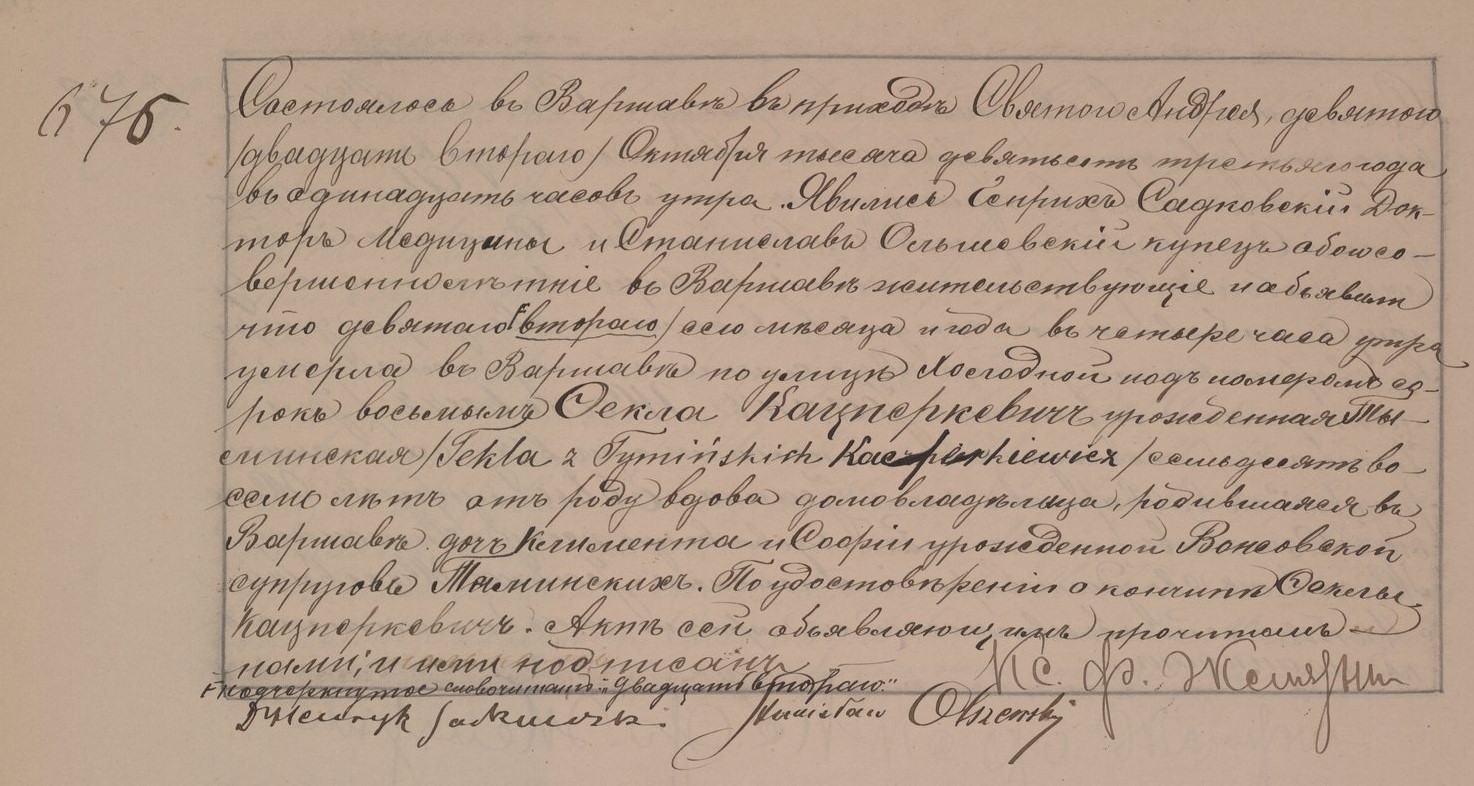 675.
Состоялось въ Варшавѣ въ приходѣ Святого Андрея, девятого
/двадцать второго/ Октября тысяча девятьсотъ третьяго года
въ одинадцать часовъ утра. Явились Генрихъ Садковскій Док-
торъ Медицины и Станиславъ Ольшевскій купецъ обоюсо-
вершеннолѣтніе въ Варшавѣ жительствующіе и объявили
что девятаго /втораго/ сего мѣсяца и года въ четыре часа утра
умерла въ Варшавѣ по улицѣ Хологдной подъ номеромъ со-
рокъ восьмымъ Ѳекла Кацперкевичъ урожденная Ты-
минская /Tekla z Tymińskich Kacperkiewicz/ семьдесятъ во-
семь лѣтъ отъ роду вдова домовладѣлица, родившаяся въ
Варшавѣ дочь Климента и Софіи урожденной Вонсовской
супруговъ Тыминскихъ. По удостовѣреніи о кончинѣ Ѳеклы
Кацперкевичъ. Актъ сей объявляющимъ прочитанъ
нами, и ими подписанъ
подчеркнутое слово читать: „двадцать второго."
Кс. Ф.
Dr Henryk Sadkowski. Stanisław Olszewski